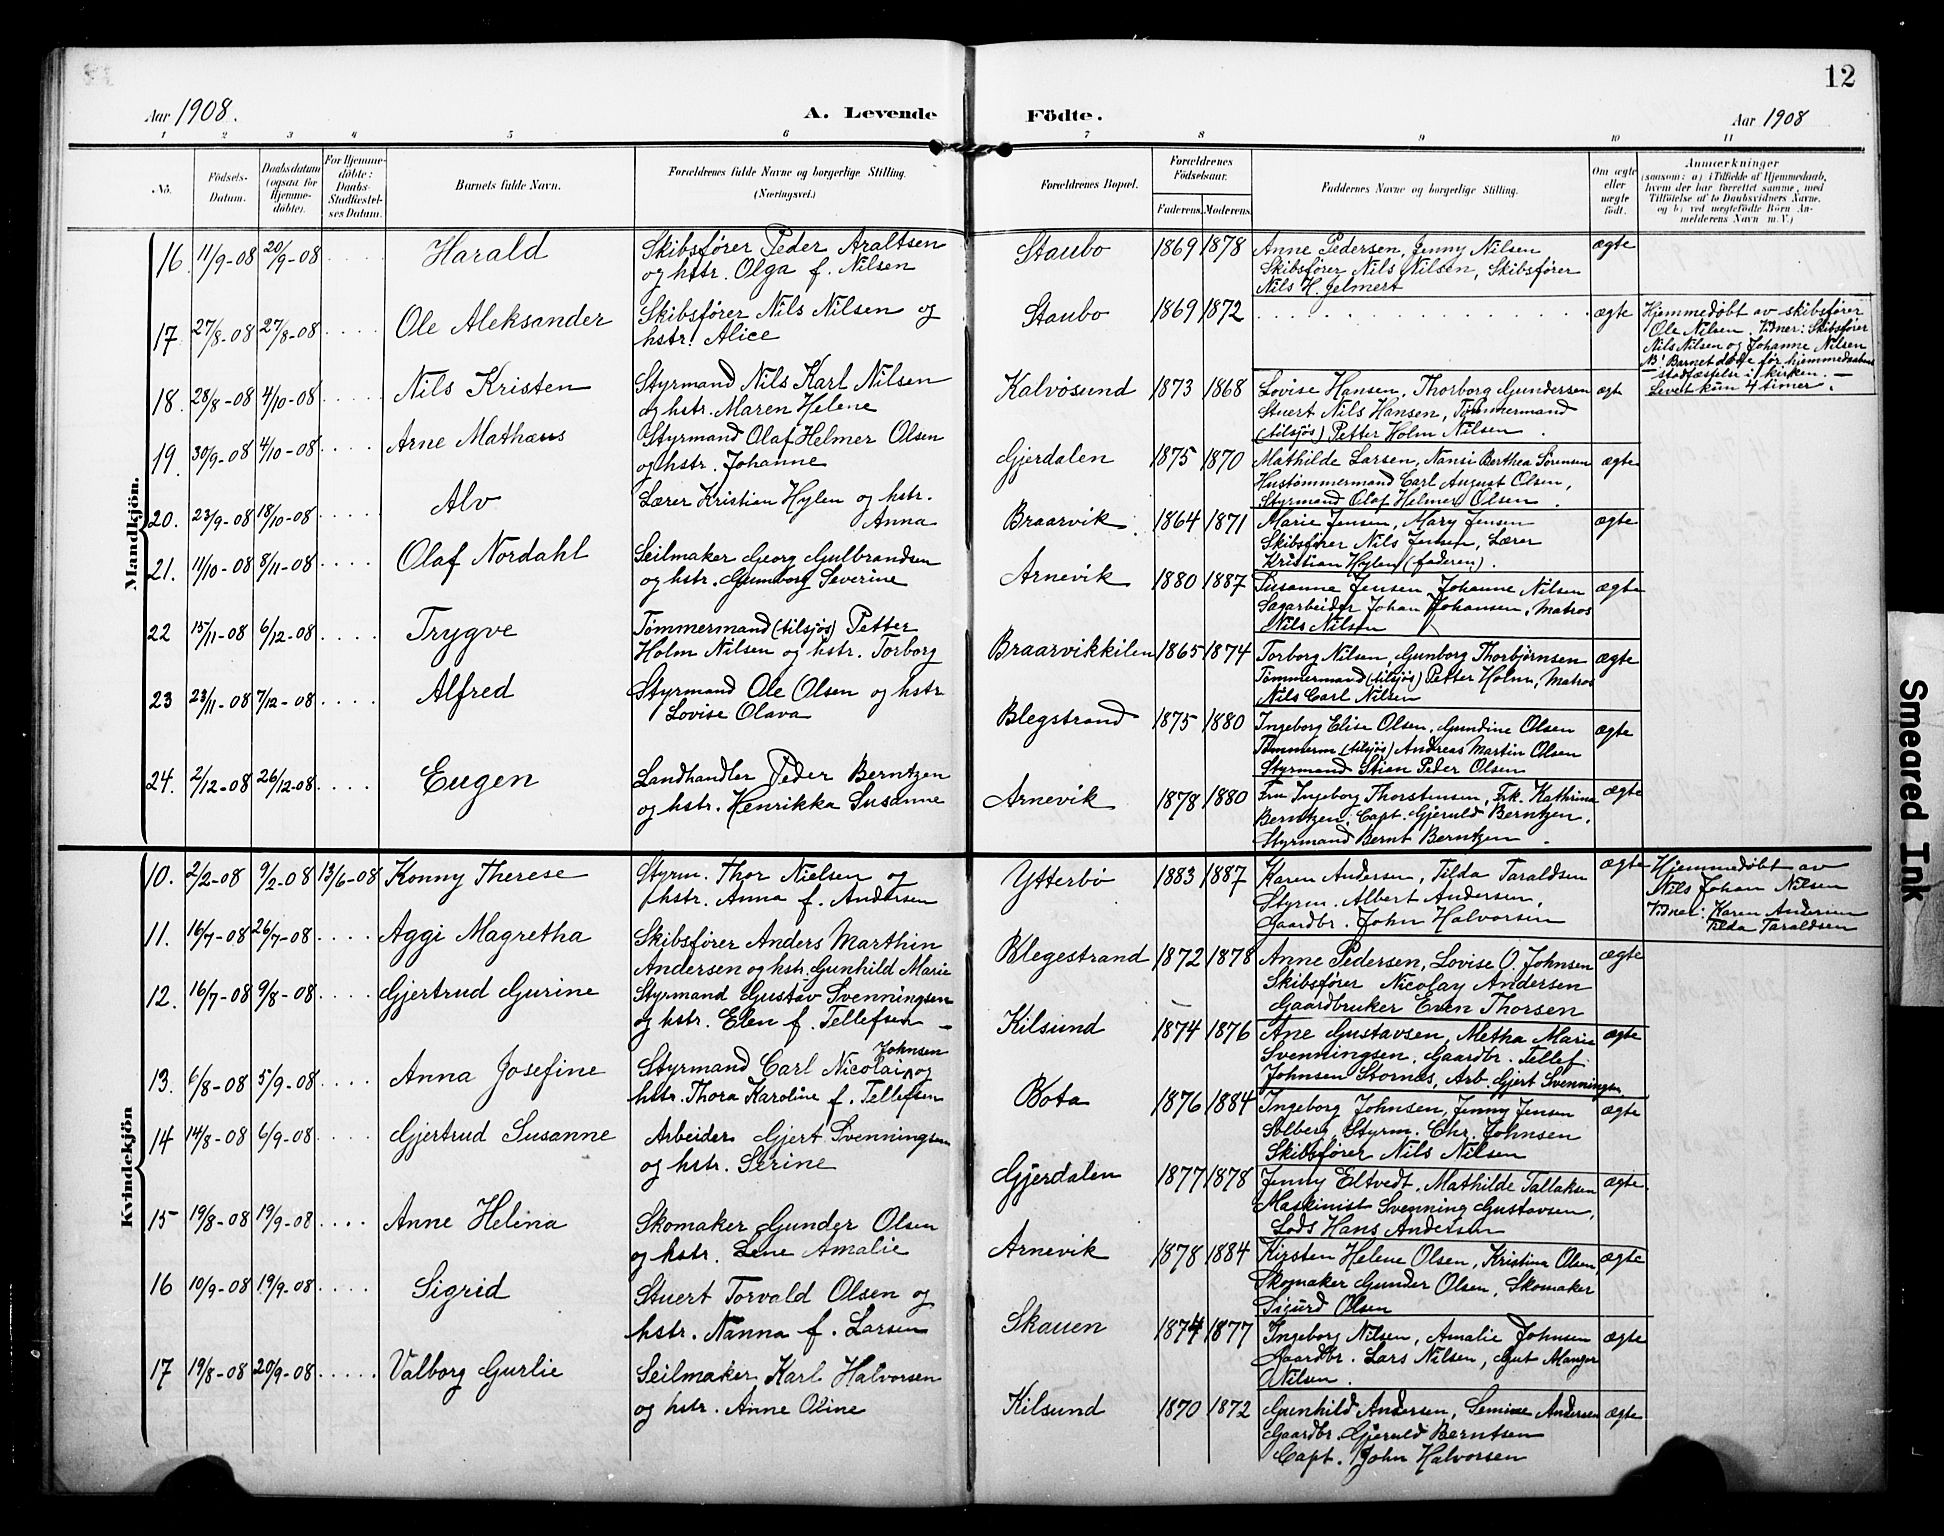 12
Aar 1908.
A. Levende Födte.
Aar 1908
1 2 3 4 5 6 7 8 9 10 11
No.
Födsels-
Datum.
Daabsdatum
(ogsaa for
Hjemme-
döbte).
For Hjemme-
döbte:
Daabs-
Stadfæstel-
ses Datum.
Barnets fulde Navn.
Forældrenes fulde Navne og borgerlige Stilling.
(Næringsvei.)
Forældrenes Bopæl.
Forældrenes
Födselsaar.
Faderens. Moderens.
Faddernes Navne og borgerlige Stilling.
Om ægte
eller
uægte
født.
Anmærkninger
(saasom: a) i Tilfælde af Hjemmedaab,
hvem der har forrettet samme, med
Tilföielse af to Daabsvidners Navne.
og b) ved uægtefödte Börn An-
melderens Navn m. V.)
Mandkjön.
16 11/9-08 20/9-08 Harald
Skibsfører Peder Araltsen
og hstr. Olga f. Nilsen
Staubo 1869 1878
Anne Pedersen, Jenny Nilsen
Skibsfører Nils Nilsen, Skibsfører
Nils H. Jelmert
ægte
17 27/8-08 27/8-08 Ole Aleksander
Skibsfører Nils Nilsen og
hstr. Alice
Staubo 1869 1872
ægte
Hjemmedøbt av skibsfører
Ole Nilsen. Vidner: Skibsfører
Nils Nilsen og Johanne Nilsen
B! Barnet døde før hjemmedaabens
stadfæstelse i kirken. –
Levet kun 4 timer.
18. 28/8-08 4/10-08 Nils Kristen
Styrmand Nils Karl Nilsen
og hstr. Maren Helene
Kalvøsund 1873 1868
Lovise Hansen, Thorborg Gundersen
Stuert Nils Hansen, Tømmermand
(tilsjøs) Petter Holm Nilsen.
ægt
19. 30/9-08 4/10-08 Arne Mathæus
Styrmand Olaf Helmer Olsen
og hstr. Johanne
Gjerdalen 1875 1870
Mathilde Larsen, Nansi Berthea Sørensen
Hustømmermand Carl August Olsen,
Styrmand Olaf Helmer Olsen.
ægte
20. 23/9-08 18/10-08 Alv
Lærer Kristian Hylen og hstr.
Anna
Braarvik 1864 1871
Marie Jensen, Mary Jensen
Skibsfører Nils Jensen, Lærer
Kristian Hylen (faderen).
ægte
21. 11/10-08 8/11-08 Olaf Nordahl
Seilmaker Georg Gulbrandsen
og hstr. Gunborg Severine
Arnevik 1880 1887
Susanne Jensen, Johanne Nilsen
Sagarbeider Johan Johansen, Matros
Nils Nilsen
ægte
22 15/11-08 6/12-08 Trygve
Tømmermand (tilsjøs) Petter
Holm Nilsen og hstr. Torborg
Braarvikkilen 1865 1874
Torborg Nilsen, Gunborg Thorbjørnsen
Tømmermand (tilsjøs) Petter Holm, Matros
Nils Carl Nilsen
ægte
23 23/11-08 7/12-08 Alfred
Styrmand Ole Olsen og hstr
Lovise Olava
Blegstrand 1875 1880
Ingeborg Elise Olsen, Gundine Olsen
Tømmerm (tilsjøs) Andreas Martin Olsen
Styrmand Stian Peder Olsen
ægte
24. 2/12-08 26/12-08 Eugen
Landhandler Peder Berntzen
og hstr. Henrikka Susanne
Arnevik 1878 1880
Fru Ingeborg Thorstensen, Frk. Kathrina
Berntzen, Capt. Gjeruld Berntzen,
Styrmand Bernt Berntzen.
ægte
Kvindekjön
10. 2/2-08 9/2-08 13/6-08 Konny Therese
Styrm. Thor Nielsen og
hstr. Anna f. Andersen
Ytterbø 1883 1887
Karen Andersen, Tilda Taraldsen
Styrm. Albert Andersen,
Gaardbr. John Halvorsen
ægte
Hjemmedøbt av
Nils Johan Nilsen
Vidner: Karen Andersen
Tilda Taraldsen
11. 16/7-08 26/7-08 Aggi Magretha
Skibsfører Anders Marthin
Andersen og hstr. Gunhild Marie
Blegestrand 1872 1878
Anne Pedersen, Lovise O. Johnsen
Skibsfører Nicolay Andersen
Gaardbruker Even Thorsen
ægte
12. 16/7-08 9/8-08 Gjertrud Gurine
Styrmand Gustav Svenningsen
og hstr. Elen f. Tellefsen –
Kilsund 1874 1876
Ane Gustavsen, Metha Marie
Svenningsen, Gaardbr. Tellef
Johnsen Stornes, Arb. Gjert Svenningsen
ægte
13. 6/8-08 5/9-08 Anna Josefine
Johnsen
Styrmand Carl Nicolai og
hstr. Thora Karoline f. Tellefsen
Bota 1876 1884
Ingeborg Johnsen, Jenny Jensen
Solberg, Styrm. Chr. Johnsen
Skibsfører Nils Nilsen
ægte
14 14/8-08 6/9-08 Gjertrud Susanne
Arbeider Gjert Svenningsen
og hstr. Serine
Gjerdalen 1877 1878
Jenny Eltvedt, Mathilde Tallaksen
Maskinist Svenning Gustavsen,
Lods Hans Andersen
ægte.
15 19/8-08 19/9-08 Anne Helina
Skomaker Gunder Olsen
og hstr. Lene Amalie
Arnevik 1878 1884
Kirsten Helene Olsen, Kristina Olsen,
Skomaker Gunder Olsen, Skomaker
Sigurd Olsen
ægte
16 10/9-08 19/9-08 Sigrid
Stuert Torvald Olsen og
hstr. Nanna f. Larsen
Skauen 1874 1877
Ingeborg Nilsen, Amalie Johnsen
Gaardbr. Lars Nilsen, Gut Manger
Nilsen.
ægte
17 19/8-08 20/9-08 Valborg Gurlie
Seilmaker Karl Halvorsen
og hstr. Anne Oline
Kilsund 1870 1872
Gunhild Andersen, Semine Andersen
Gaardbr. Gjeruld Berntsen
Capt. John Halvorsen
ægte
Smeared Ink